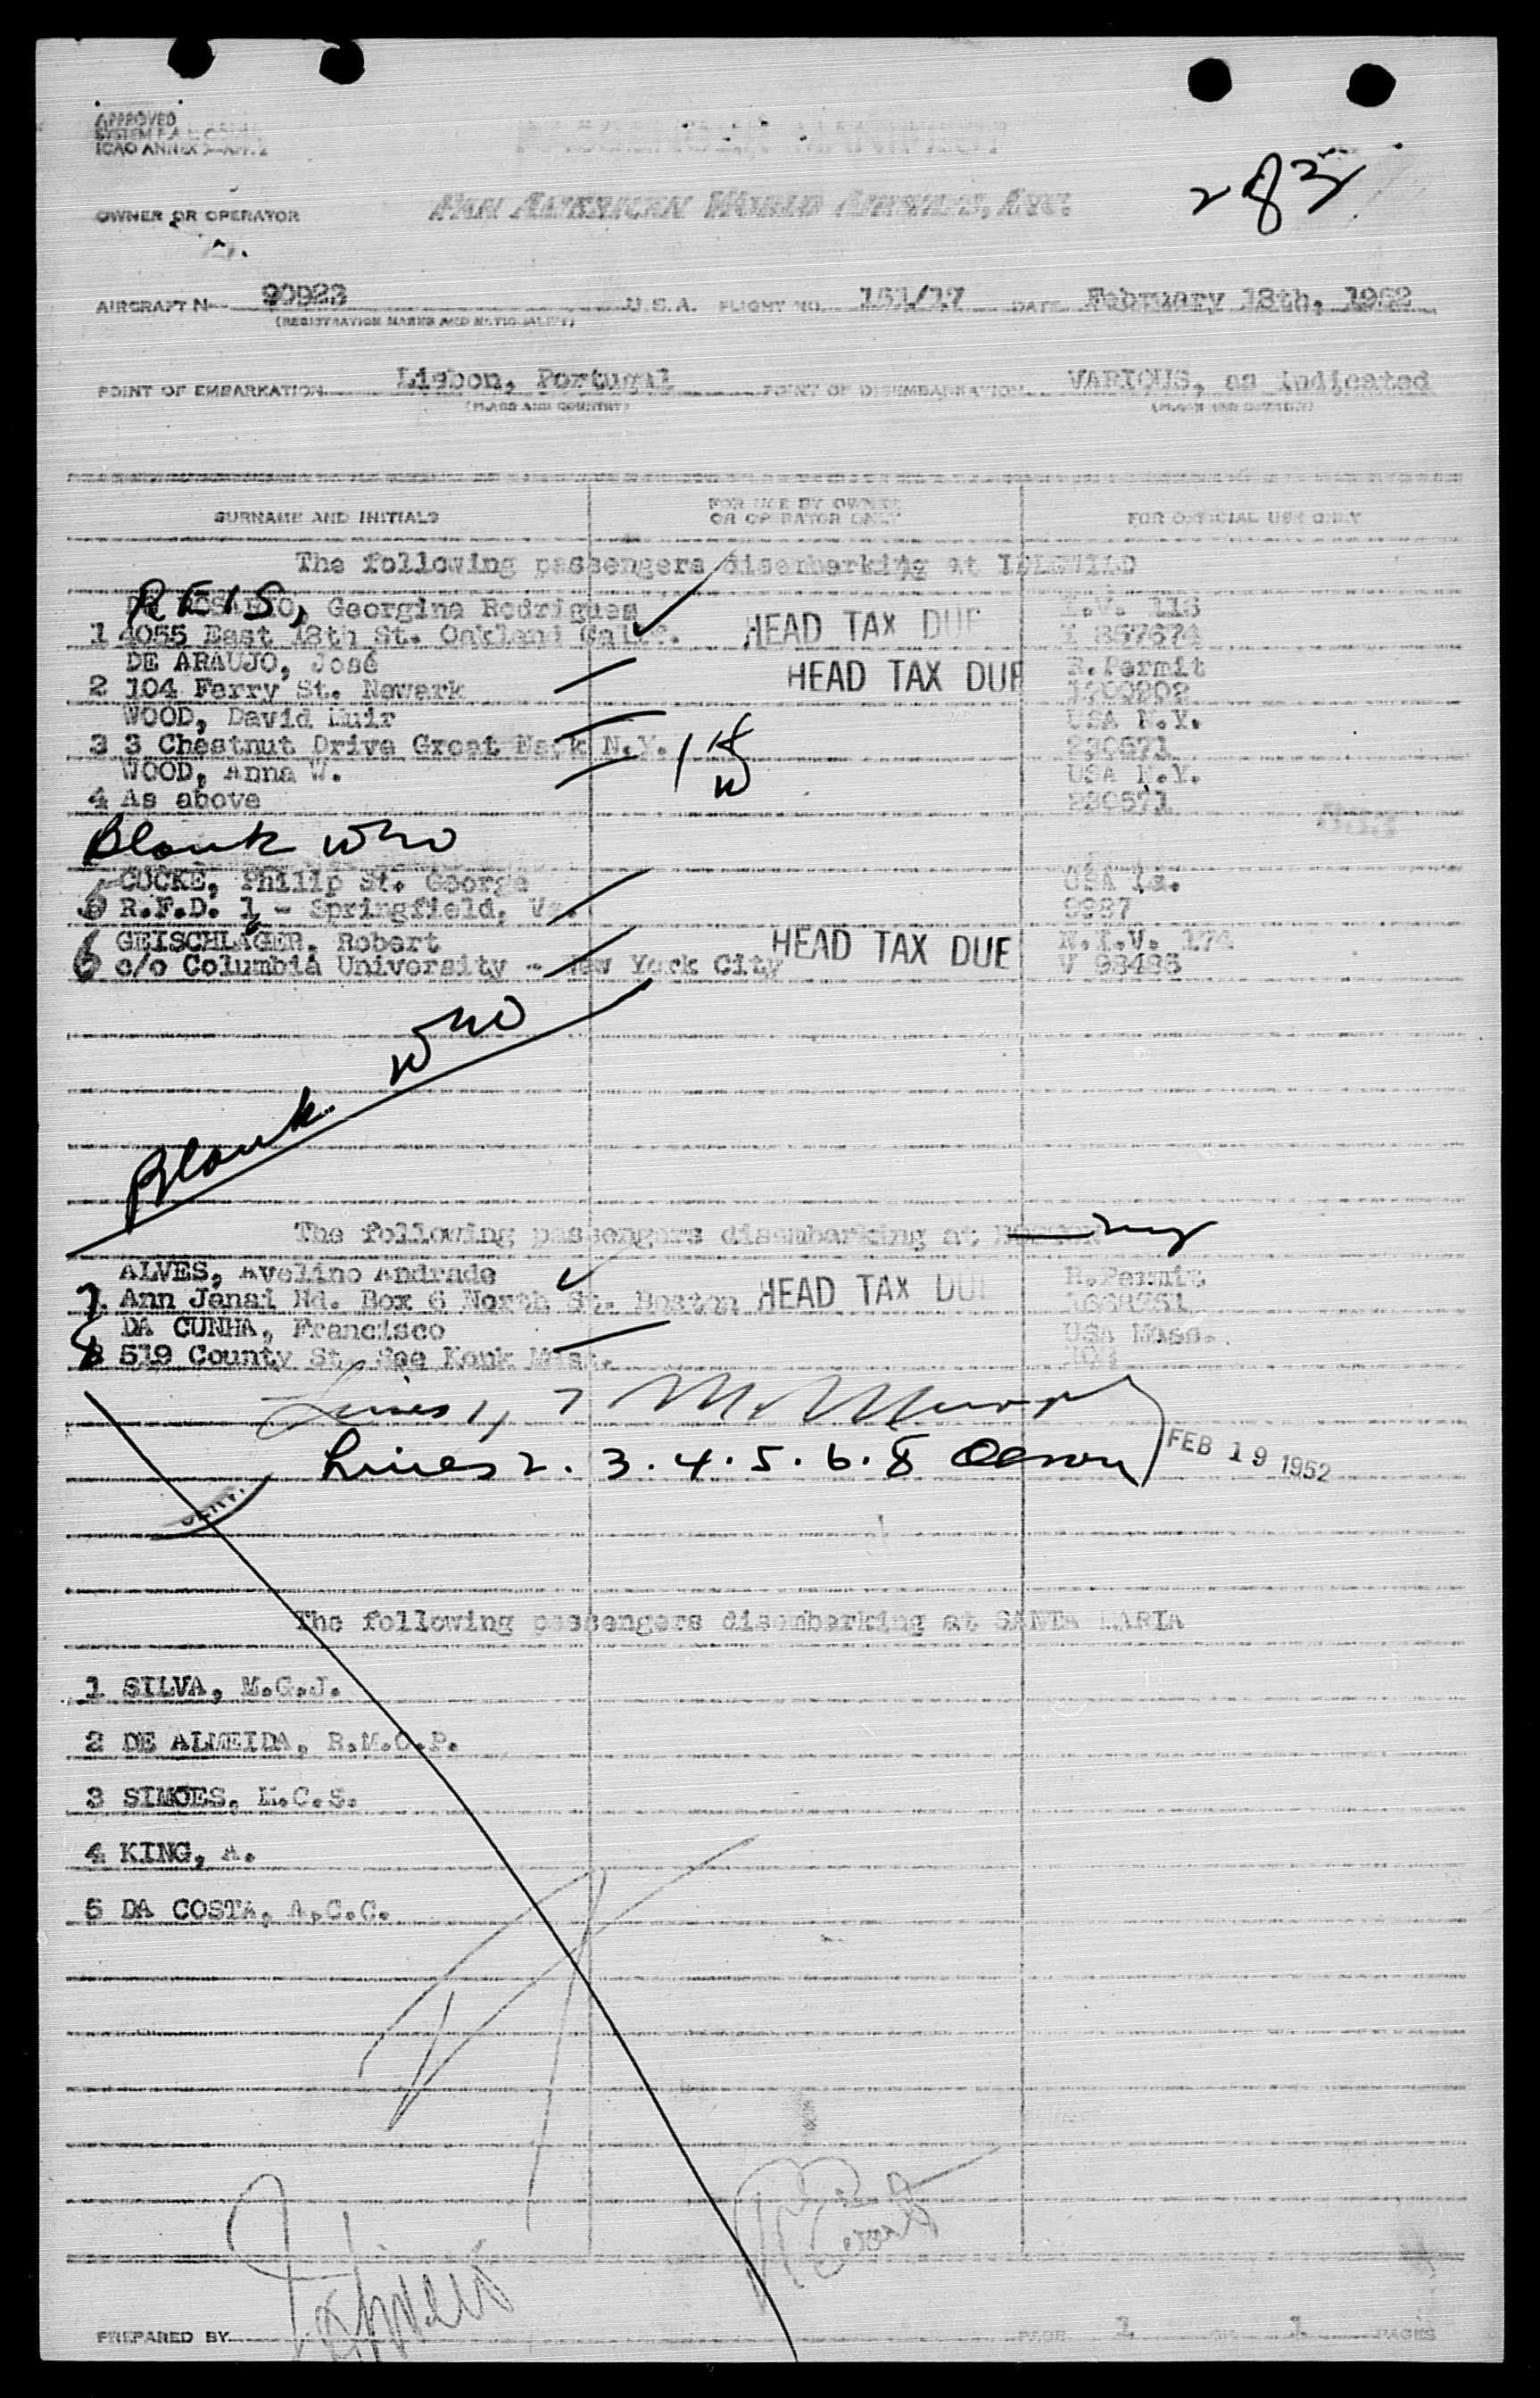 APPROVED
OWNER OR OPERATOR
PAN AMERICAN WORLD AIRWAYS, INC.
283
AIRCRAFT No 90923 U.S.A. FLIGHT NO. 151/17 DATE February 18th, 1952
(REGISTRATION MARKS AND NATIONALITY)
POINT OF EMBARKATION Lisbon, Portugal POINT OF DISEMBARKATION VARIOUS, as indicated
(PLACE AND COUNTRY) (PLACE AND COUNTRY)
SURNAME AND INITIALS FOR USE BY OWNER OR OPERATOR ONLY FOR OFFICIAL USE ONLY
The following passengers disembarking at IDLEWILD
REIS, Georgina Rodrigues
1 4055 East 18th St. Oakland Calif. HEAD TAX DUE I 857674
DE ARAUJO, José R.Permit
2 104 Ferry St. Newark HEAD TAX DUE
WOOD, David Muir USA N.Y.
3 3 Chestnut Drive Great Neck N.Y. 230571
WOOD, Anna W. USA N.Y.
4 As above 230571
Blank
COCKE, Philip St. George
5 R.F.D. 1 - Springfield, Va. 9987
GEISCHLÄGER, Robert N.I.V. 174
6 c/o Columbia University - New York City HEAD TAX DUE V 98485
Blank
The following passengers disembarking at BOSTON NY
ALVES, Avelino Andrade R.Permit
7 Ann Janai Rd. Box 6 North St. Boston HEAD TAX DUE
DA CUNHA, Francisco USA Mass.
8 519 County St. See Konk Mass.
Lines 1, 7
Lines 2. 3. 4. 5. 6. 8 Olson
FEB 19 1952
The following passengers disembarking at SANTA MARIA
1 SILVA, M.G.J.
2 DE ALMEIDA, R.M.C.P.
3 SIMÕES, M.C.S.
4 KING, A.
5 DA COSTA, A.C.C.
PREPARED BY PAGE 1 OF 1 PAGES